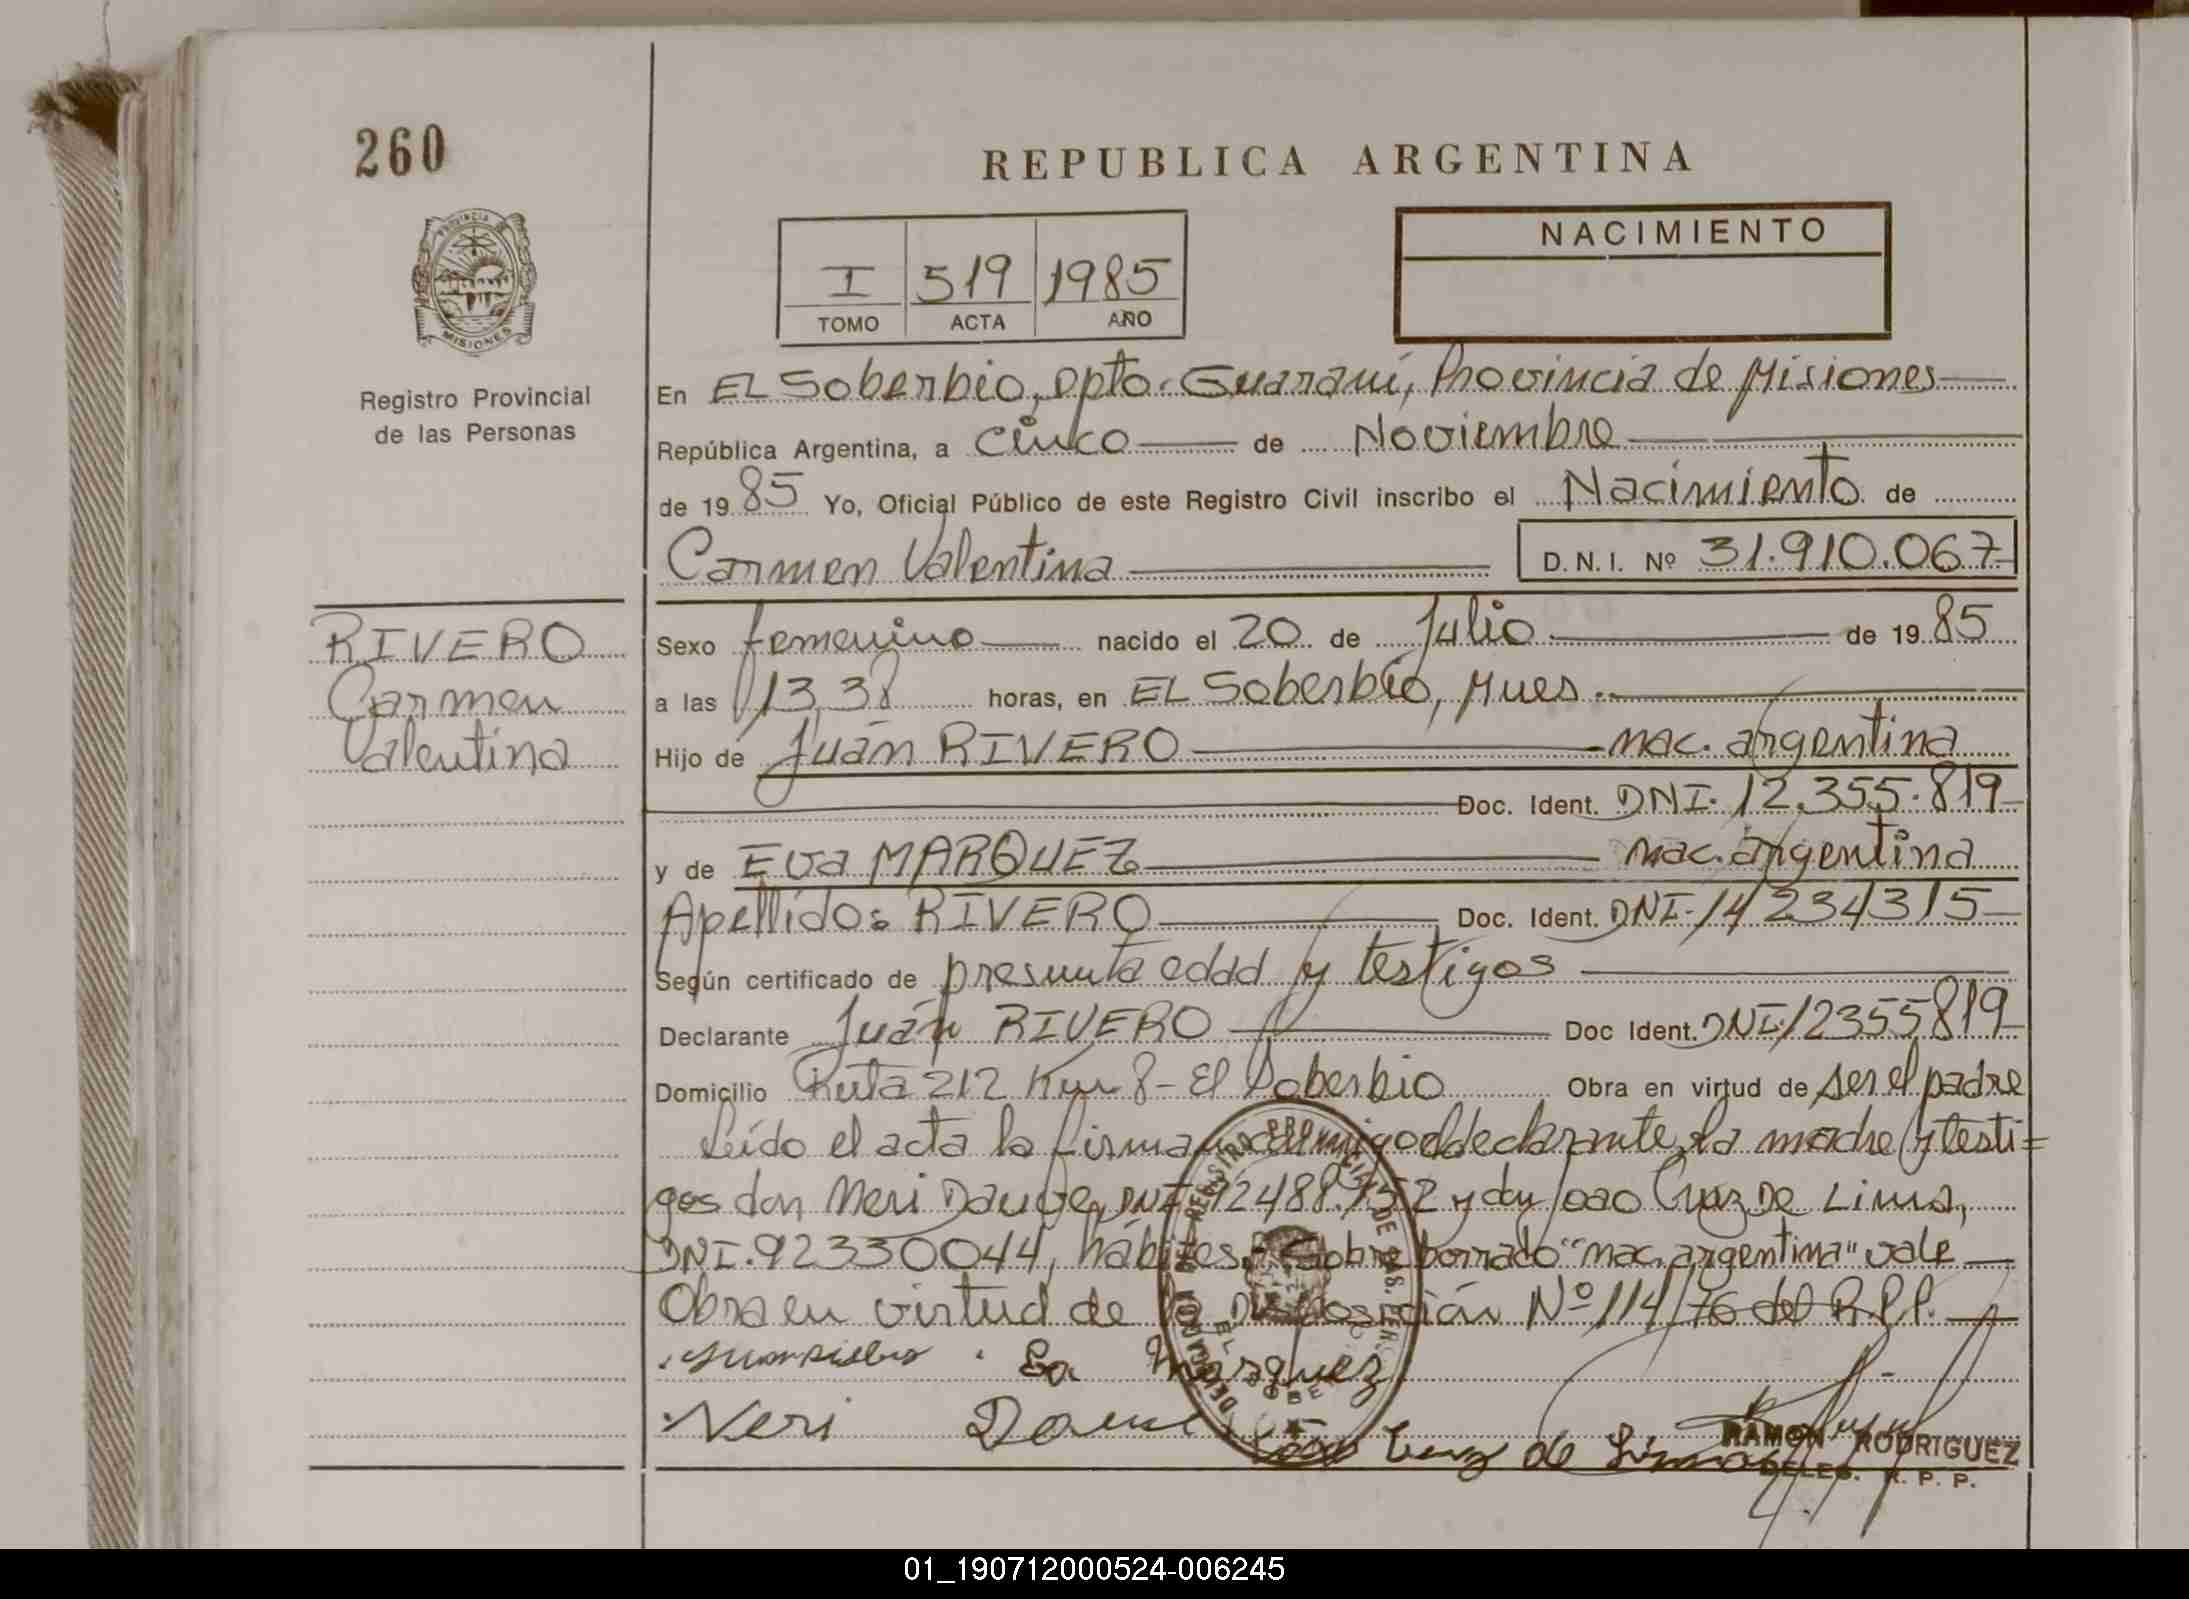 260
REPUBLICA ARGENTINA
PROVINCIA
MISIONES
Registro Provincial
de las Personas
I 519 1985
TOMO ACTA AÑO
NACIMIENTO
En EL Soberbio, Dpto. Guaraní, Provincia de Misiones
República Argentina, a Cinco de Noviembre
de 19 85 Yo, Oficial Público de este Registro Civil inscribo el Nacimiento de
Carmen Valentina D.N.I. Nº 31.910.067
RIVERO
Carmen
Valentina
Sexo femenino nacido el 20 de Julio de 19 85
a las 13,38 horas, en EL Soberbio, Mnes.
Hijo de Juán RIVERO nac. argentina
Doc. Ident. DNI. 12.355.819
y de Eva MARQUEZ nac. argentina
Apellido: RIVERO Doc. Ident. DNI. 14234315
Según certificado de presunta edad y testigos
Declarante Juán RIVERO Doc Ident. DNI. 12355819
Domicilio Ruta 212 Km 8 - El Soberbio Obra en virtud de ser el padre
Leído el acta la firman conmigo el declarante, la madre y testi=
gos don Neri Dauve, DNI 92488.752 y don Joao Cruz De Lima,
DNI. 92330044, hábiles.- Sobre borrado "nac. argentina" vale
Obra en virtud de la Disposición Nº 114/76 del R.P.P.
Ea Marquez
Neri Dauve
Joao Cruz de Lima
RAMON RODRIGUEZ
DELEG. R. P. P.
01_190712000524-006245